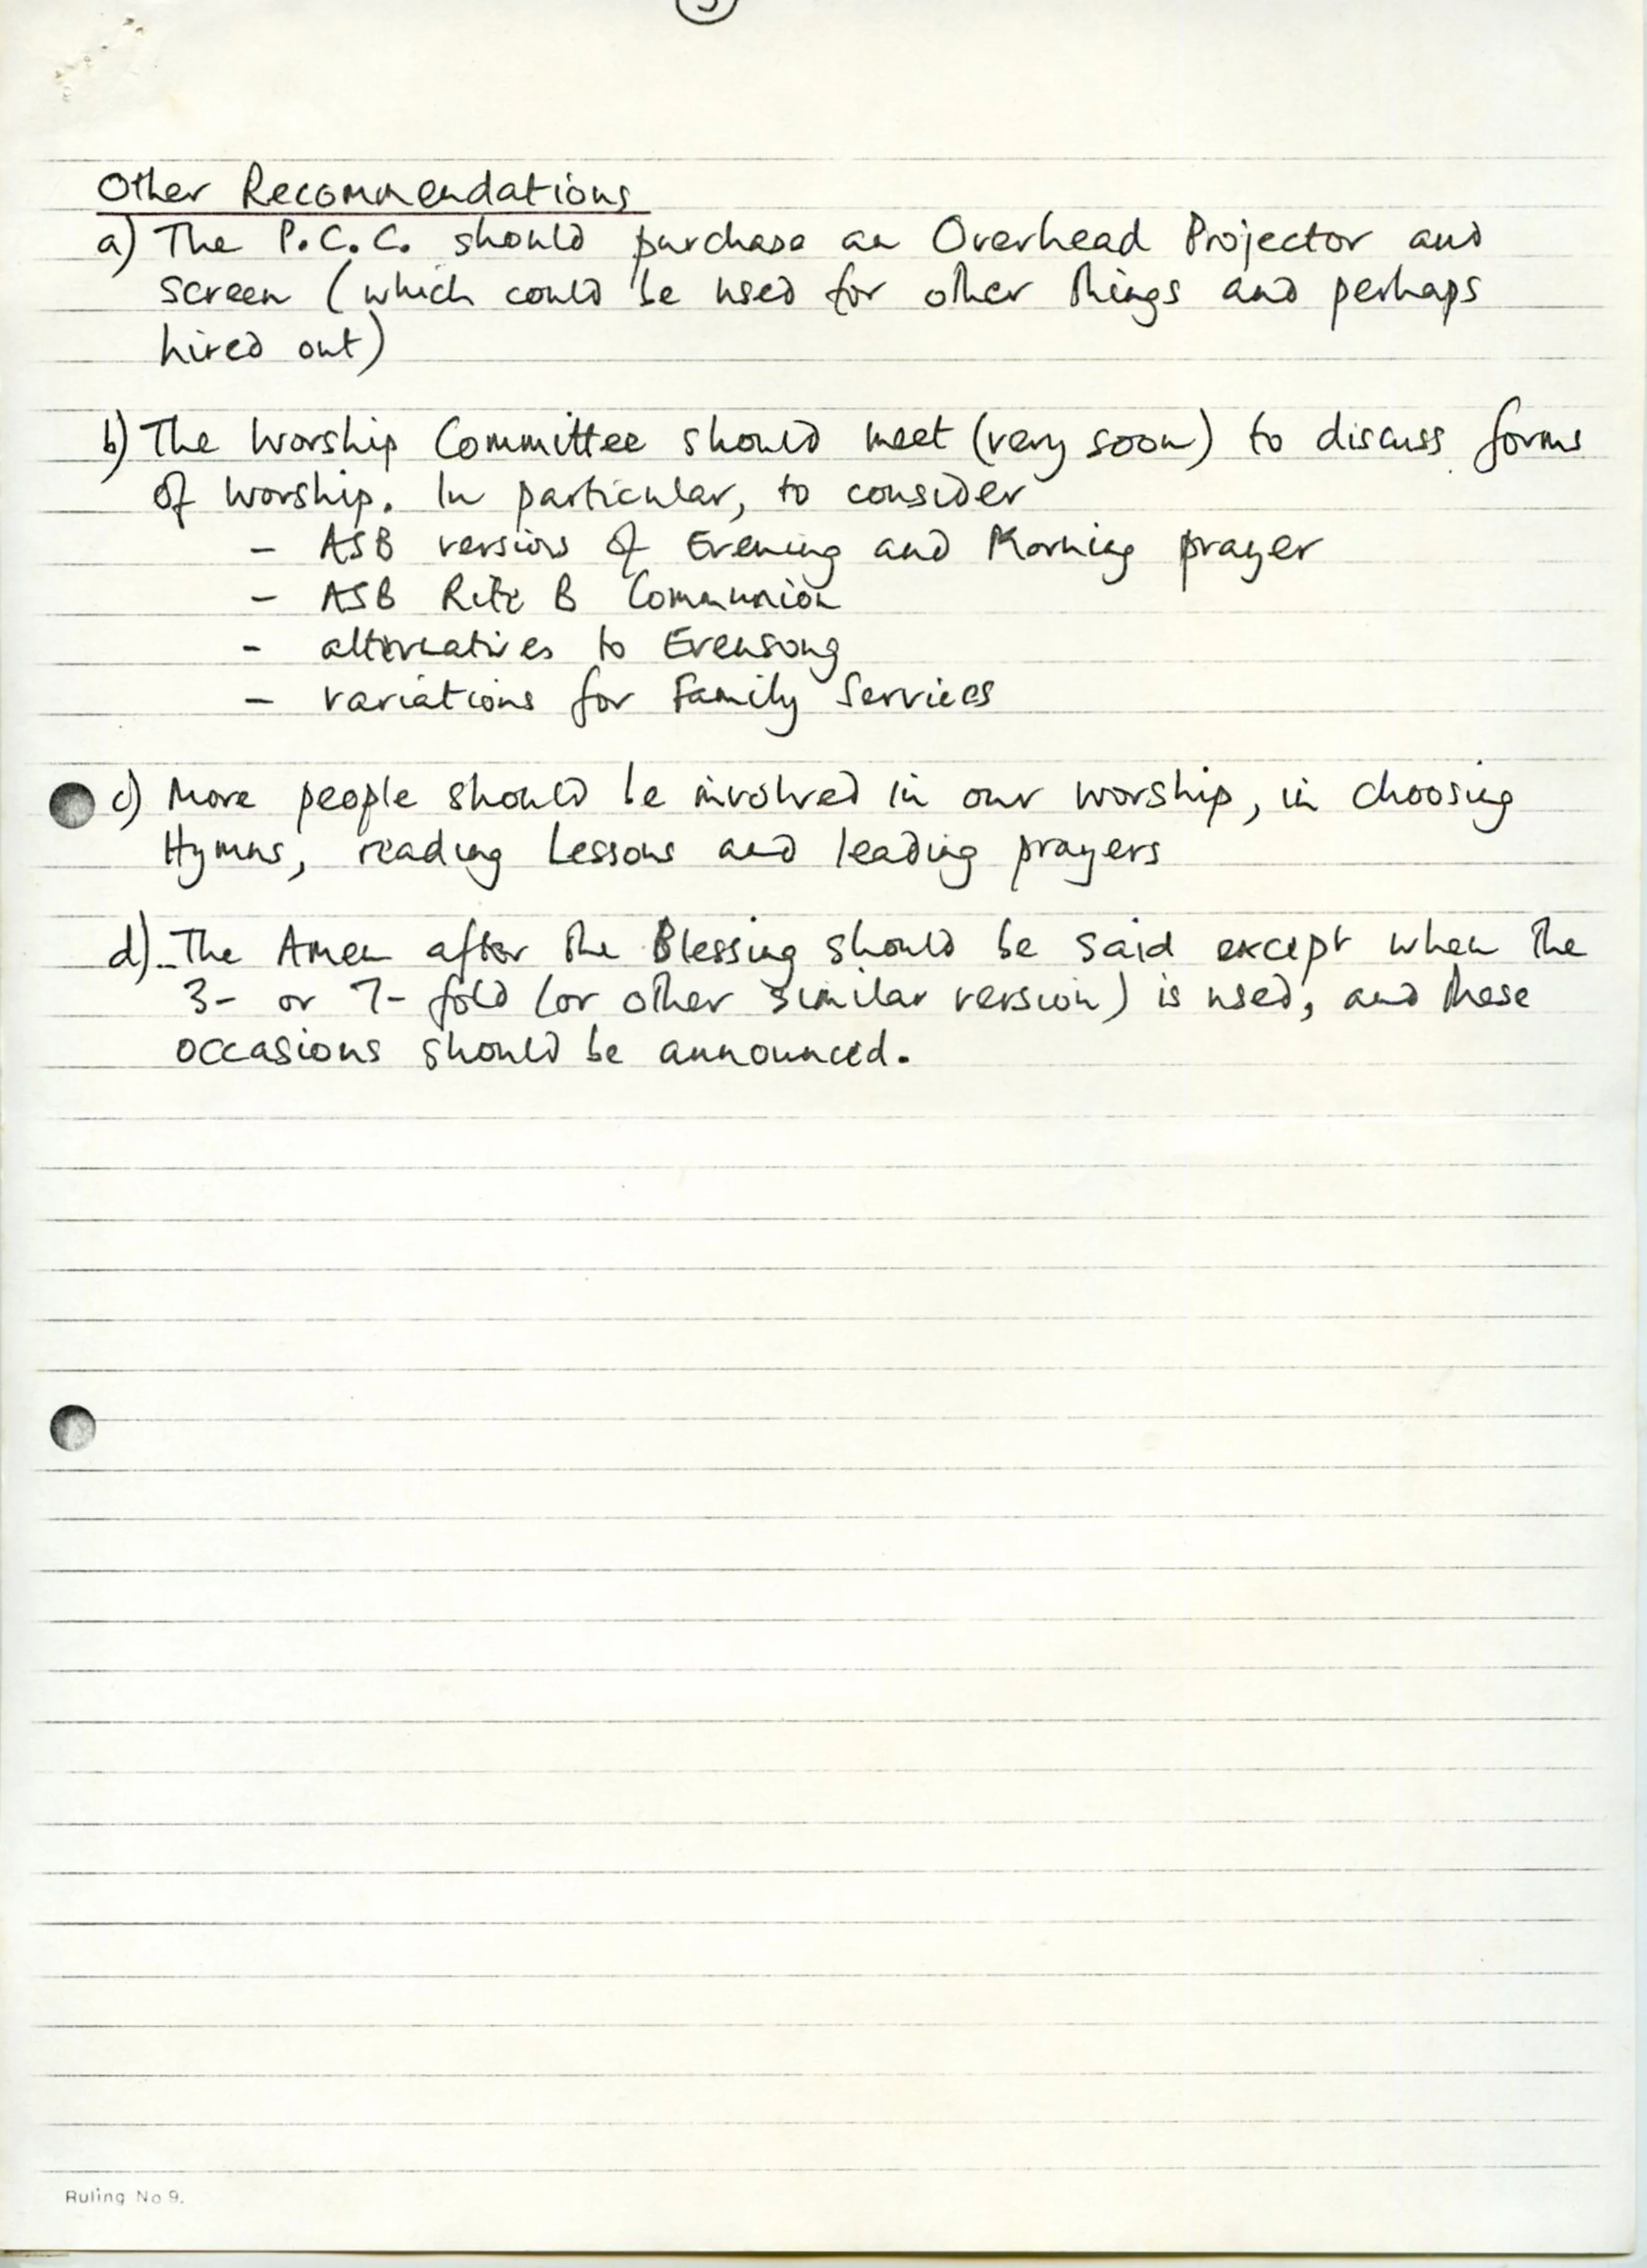 Other Recommendations
a) The P.C.C. should purchase an Overhead Projector and
screen (which could be used for other things and perhaps
hired out)
b) The Worship Committee should meet (very soon) to discuss forms
of worship. In particular, to consider
- ASB version of Evening and Morning prayer
- ASB Rite B Communion
- alternatives to Evensong
- variations for Family Services
c) More people should be involved in our worship, in choosing
Hymns, reading Lessons and leading prayers
d) The Amen after the Blessing should be said except when the
3- or 7-fold (or other similar version) is used, and these
occasions should be announced.
Ruling No 9.